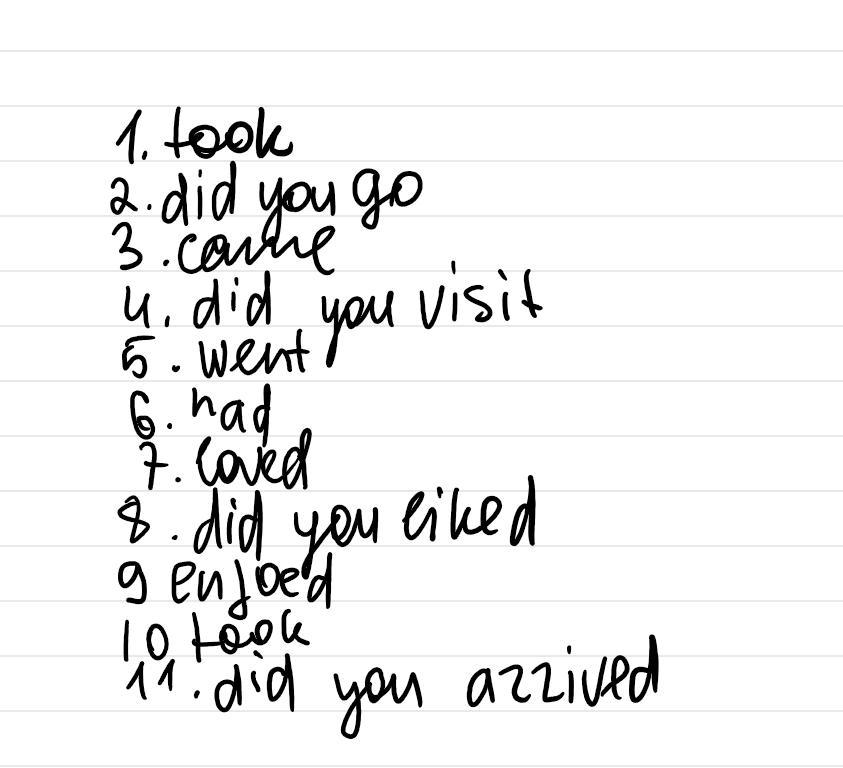 1. took
2. did you go
3. came
4. did you visit
5. went
6. had
7. loved
8. did you liked
9 enjoed
10 took
11. did you arrived